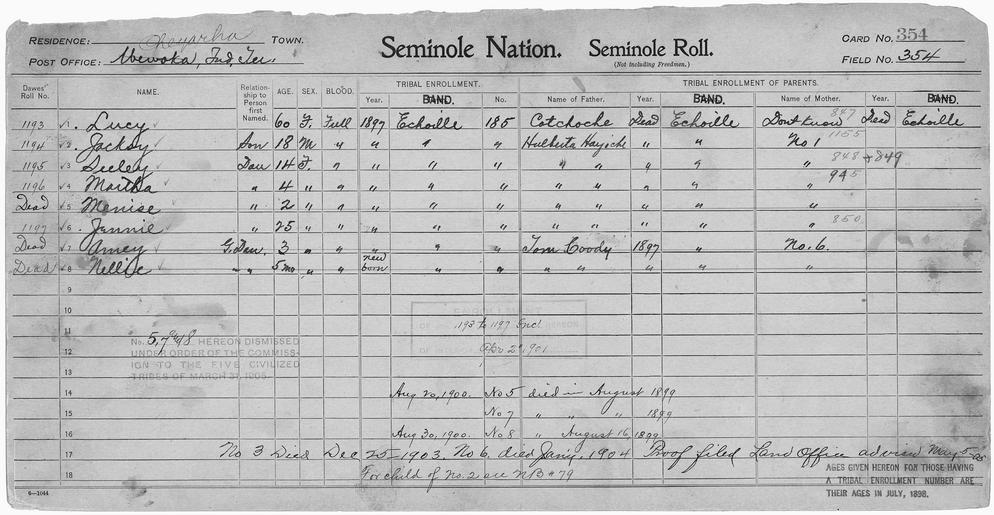 RESIDENCE: TOWN.
POST OFFICE: Wewoka, Ind. Ter.
Seminole Nation. Seminole Roll.
(Not Including Freedmen.)
CARD No. 354
FIELD No. 354
Dawes' Roll No. NAME. Relationship to Person first Named. AGE. SEX. BLOOD. TRIBAL ENROLLMENT. TRIBAL ENROLLMENT OF PARENTS.
Year. BAND. No. Name of Father. Year. BAND. Name of Mother. Year. BAND.
1193 1 Lucy 60 F. Full 1897 Echoille 185 Cotchoche Dead Echoille Dont Know 847 Dead Echoille
1194 2 Jacksy Son 18 M " " " " Hulbutta " " No 1 1155
1195 3 Seeley Dau 14 F. " " " " " " " " " 848 + 849
1196 4 Martha " 4 " " " " " " " " " 945
Dead 5 Menise " 2 " " " " " " " " "
1197 6 Jennie " 25 " " " " " " " " " 850
Dead 7 Amey G. Dau. 3 " " " " " Tom Coody 1897 " No. 6.
Dead 8 Nellie " " 5 mo " " new born " " " " " " "
9
10
11 1193 to 1197 Incl
No. 5, 7 & 8 HEREON DISMISSED
UNDER ORDER OF THE COMMISS-
12
ION TO THE FIVE CIVILIZED
13
TRIBES OF MARCH 31, 1905.
14 Aug 20, 1900. No 5 died in August 1899
15 No 7 " " " 1899
16 Aug 30, 1900. No 8 " August 16, 1899
17 No 3 Died Dec 25 - 1903. No 6, died Jany, 1904 Proof filed Land Office advised May 5-05
18 For child of No. 2 see NB #79
AGES GIVEN HEREON FOR THOSE HAVING
A TRIBAL ENROLLMENT NUMBER ARE
THEIR AGES IN JULY, 1898.
6—1044